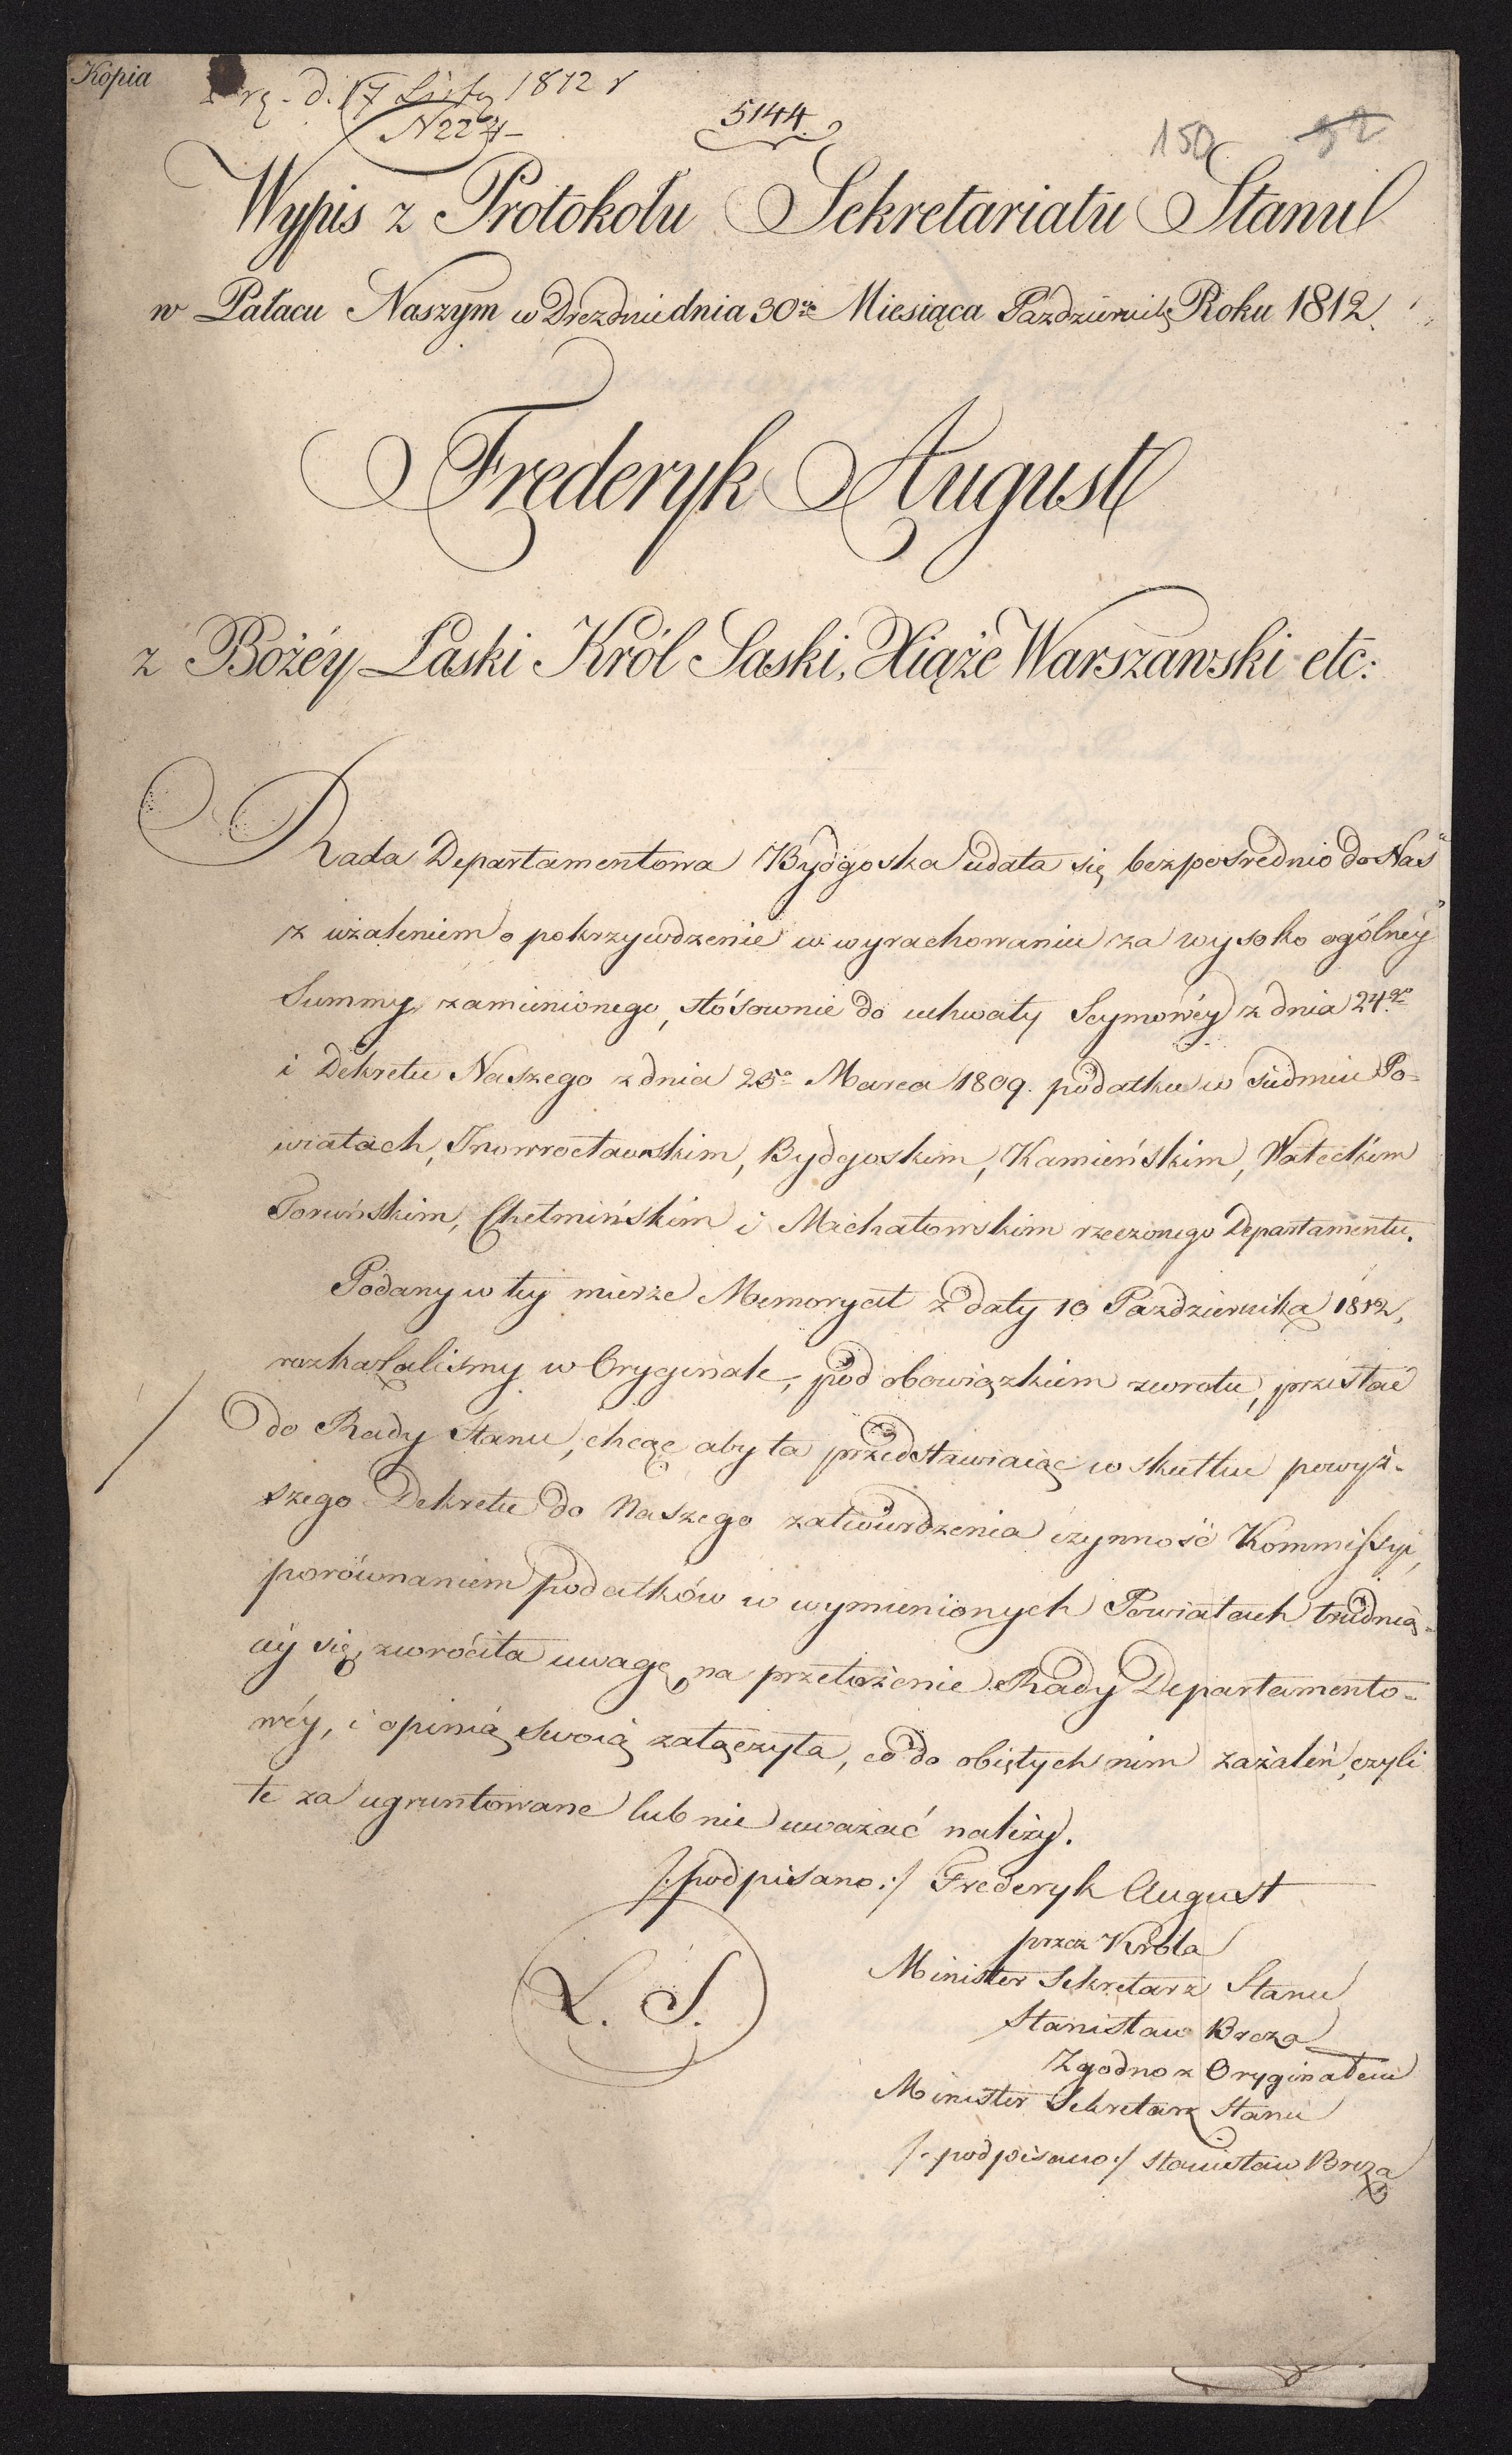 Kopia
d. 17 Listop 1812 r
N 2274
5144.
150 92
Wypis z Protokołu Sekretariatu Stanu
w Pałacu Naszym w Dreznie dnia 30go Miesiąca Październik Roku 1812.
Frederyk August
z Bożéy Łaski Król Saski, Xiąże Warszawski etc:
Rada Departamentowa Bydgoska udała się bezpośrednio do Nas
z użaleniem o pokrzywdzenie w wyrachowaniu za wysoko ogólnéy
Summy zamienionego, stósownie do uchwały Seymowéy z dnia 24go
i Dekretu Naszego z dnia 25o Marca 1809. podatku w siedmiu Po-
wiatach, Inowrocławskim, Bydgoskim, Kamieńskim, Wałeckim
Toruńskim, Chełmińskim i Michałowskim rzeczonego Departamentu.
Podany w téy mierze Memoryał z daty 10 Października 1812,
rozkazaliśmy w Oryginale, pod obowiązkiem zwrotu, przesłać
do Rady Stanu, chcąc aby ta przedstawiaiąc w skutku powyż-
szego Dekretu do Naszego zatwierdzenia czynność Kommissyi,
porównaniem podatków w wymienionych Powiatach trudnią-
céy się, zwróciła uwagę na przełożenie Rady Departamento-
wéy, i opinią swoią załączyła, co do obiętych nim zażaleń, czyli
te za ugruntowane lub nie uważać należy.
/:podpisano:/ Frederyk August
przez Króla
Minister Sekretarz Stanu
Stanisław Breza
L. S.
Zgodno z Oryginałem
Minister Sekretarz Stanu
/:podpisano:/ Stanisław Breza